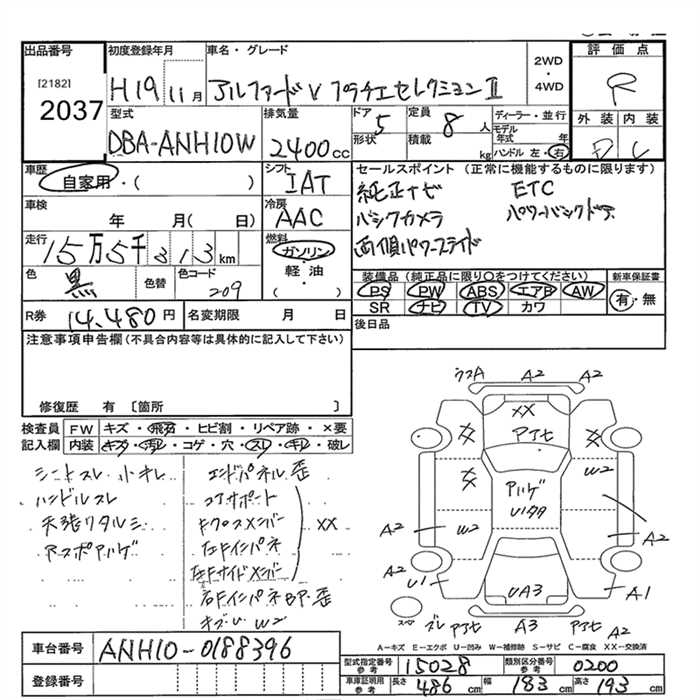 出品番号 初度登録年月 車名・グレード 2WD・4WD 評価点
[2182] 2037 H19 11月 アルファード V プラチナセレクションⅡ R
型式 排気量 ドア形状 5 定員 8人 積載 kg ディーラー・並行 外装 内装
DBA-ANH10W 2400cc モデル年式 年 ハンドル 左・右 D C
車歴 自家用・( ) シフト IAT セールスポイント (正常に機能するものに限ります)
純正ナビ ETC
車検 年 月( 日) 冷房 AAC バックカメラ パワーバックドア
走行 15万5千313km 燃料 ガソリン・軽油・( ) 両側パワースライド
色 黒 色替 色コード 209 装備品 (純正品に限り○をつけてください) 新車保証書
PS PW ABS エアB AW 有・無
SR ナビ TV カワ
R券 14,480円 名変期限 月 日 後日品
注意事項申告欄 (不具合内容等は具体的に記入して下さい)
修復歴 有 [箇所 ]
検査員記入欄 FW キズ・飛石・ヒビ割・リペア跡・×要
内装 キズ・汚レ・コゲ・穴・スレ・キレ・破レ
シートスレ 小キレ エンドパネル歪
ハンドルスレ コアサポート
天張りタルミ Fクロスメンバー XX
アスポアハゲ 左Fインパネ
左Fサイドメンバー
右FインパネBP.歪
キズU W2
ウスA A2 A2
XX アアセ
XX XX
アハゲ U1タタ W2
A2 W2 A2
A2 U1 UA3 A1
スペ ズレ アアセ A3 アアセ A2
A-キズ E-エクボ U-凹み W-補修跡 S-サビ C-腐食 XX-交換済
車台番号 ANH10-0188396
型式指定番号 参考 15028 類別区分番号 参考 0200
登録番号 車庫証明用 参考 長さ 486cm 幅 183cm 高さ 193cm